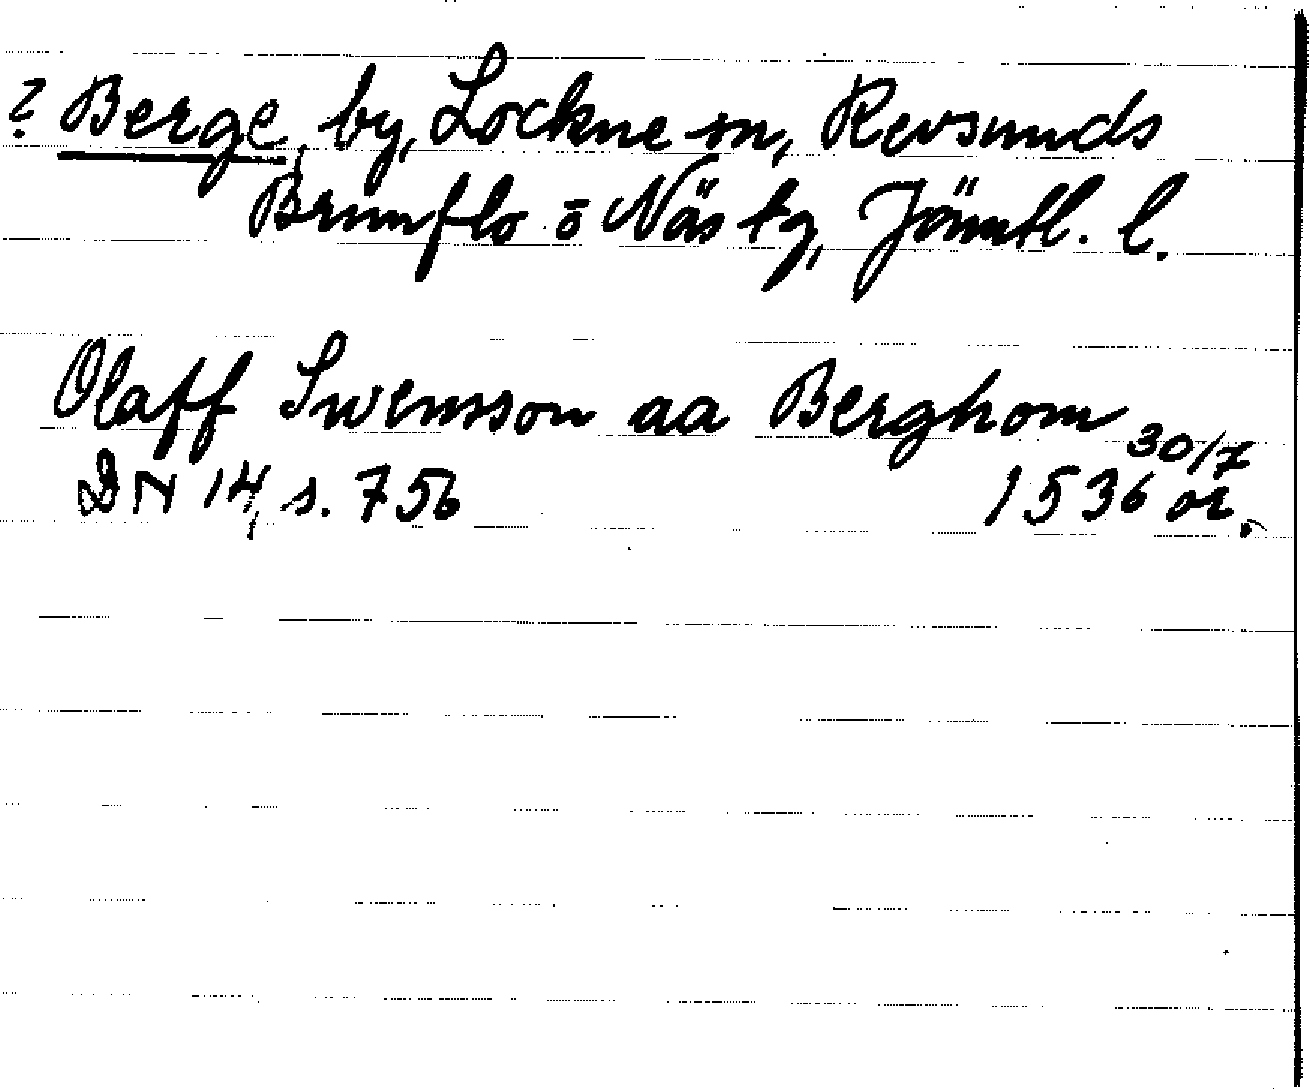 ? Berge, by, Lockne sn, Revsunds
Brunflo ō Näs tg, Jämtl. l.
Olaff Swensson aa Berghom
30/7
DN 14, s. 756 1536 or.